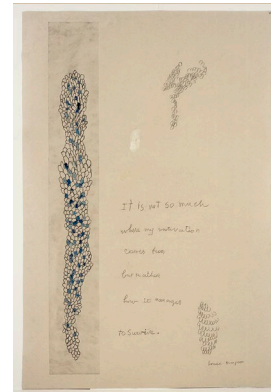 It is not so much
where my motivation
comes from
but rather
how it manages
to survive.